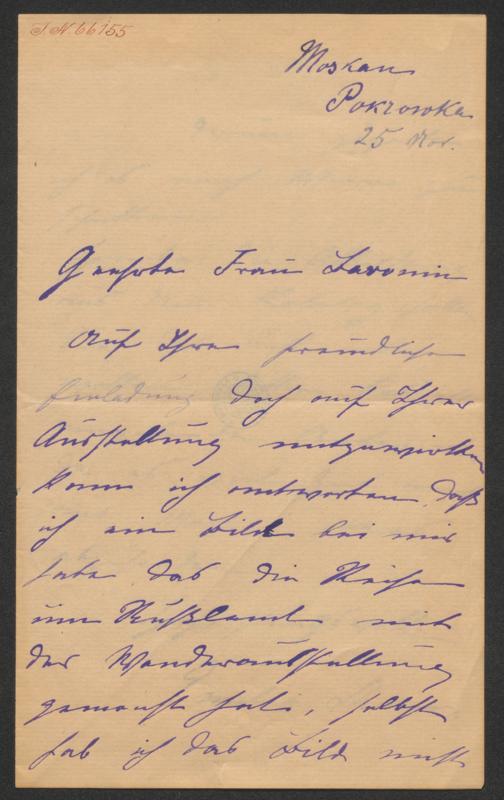 J.N. 66155
Moskau
Pokrowka
25 Nov.
Geehrte Frau Baronin
Auf Ihre freundliche
Einladung doch auf Ihrer
Ausstellung mitzuwirken
kann ich antworten, daß
ich ein Bild bei mir
habe das die Reise
um Rußland mit
der Wanderausstellung
gemacht hat, selbst
hab ich das Bild nicht